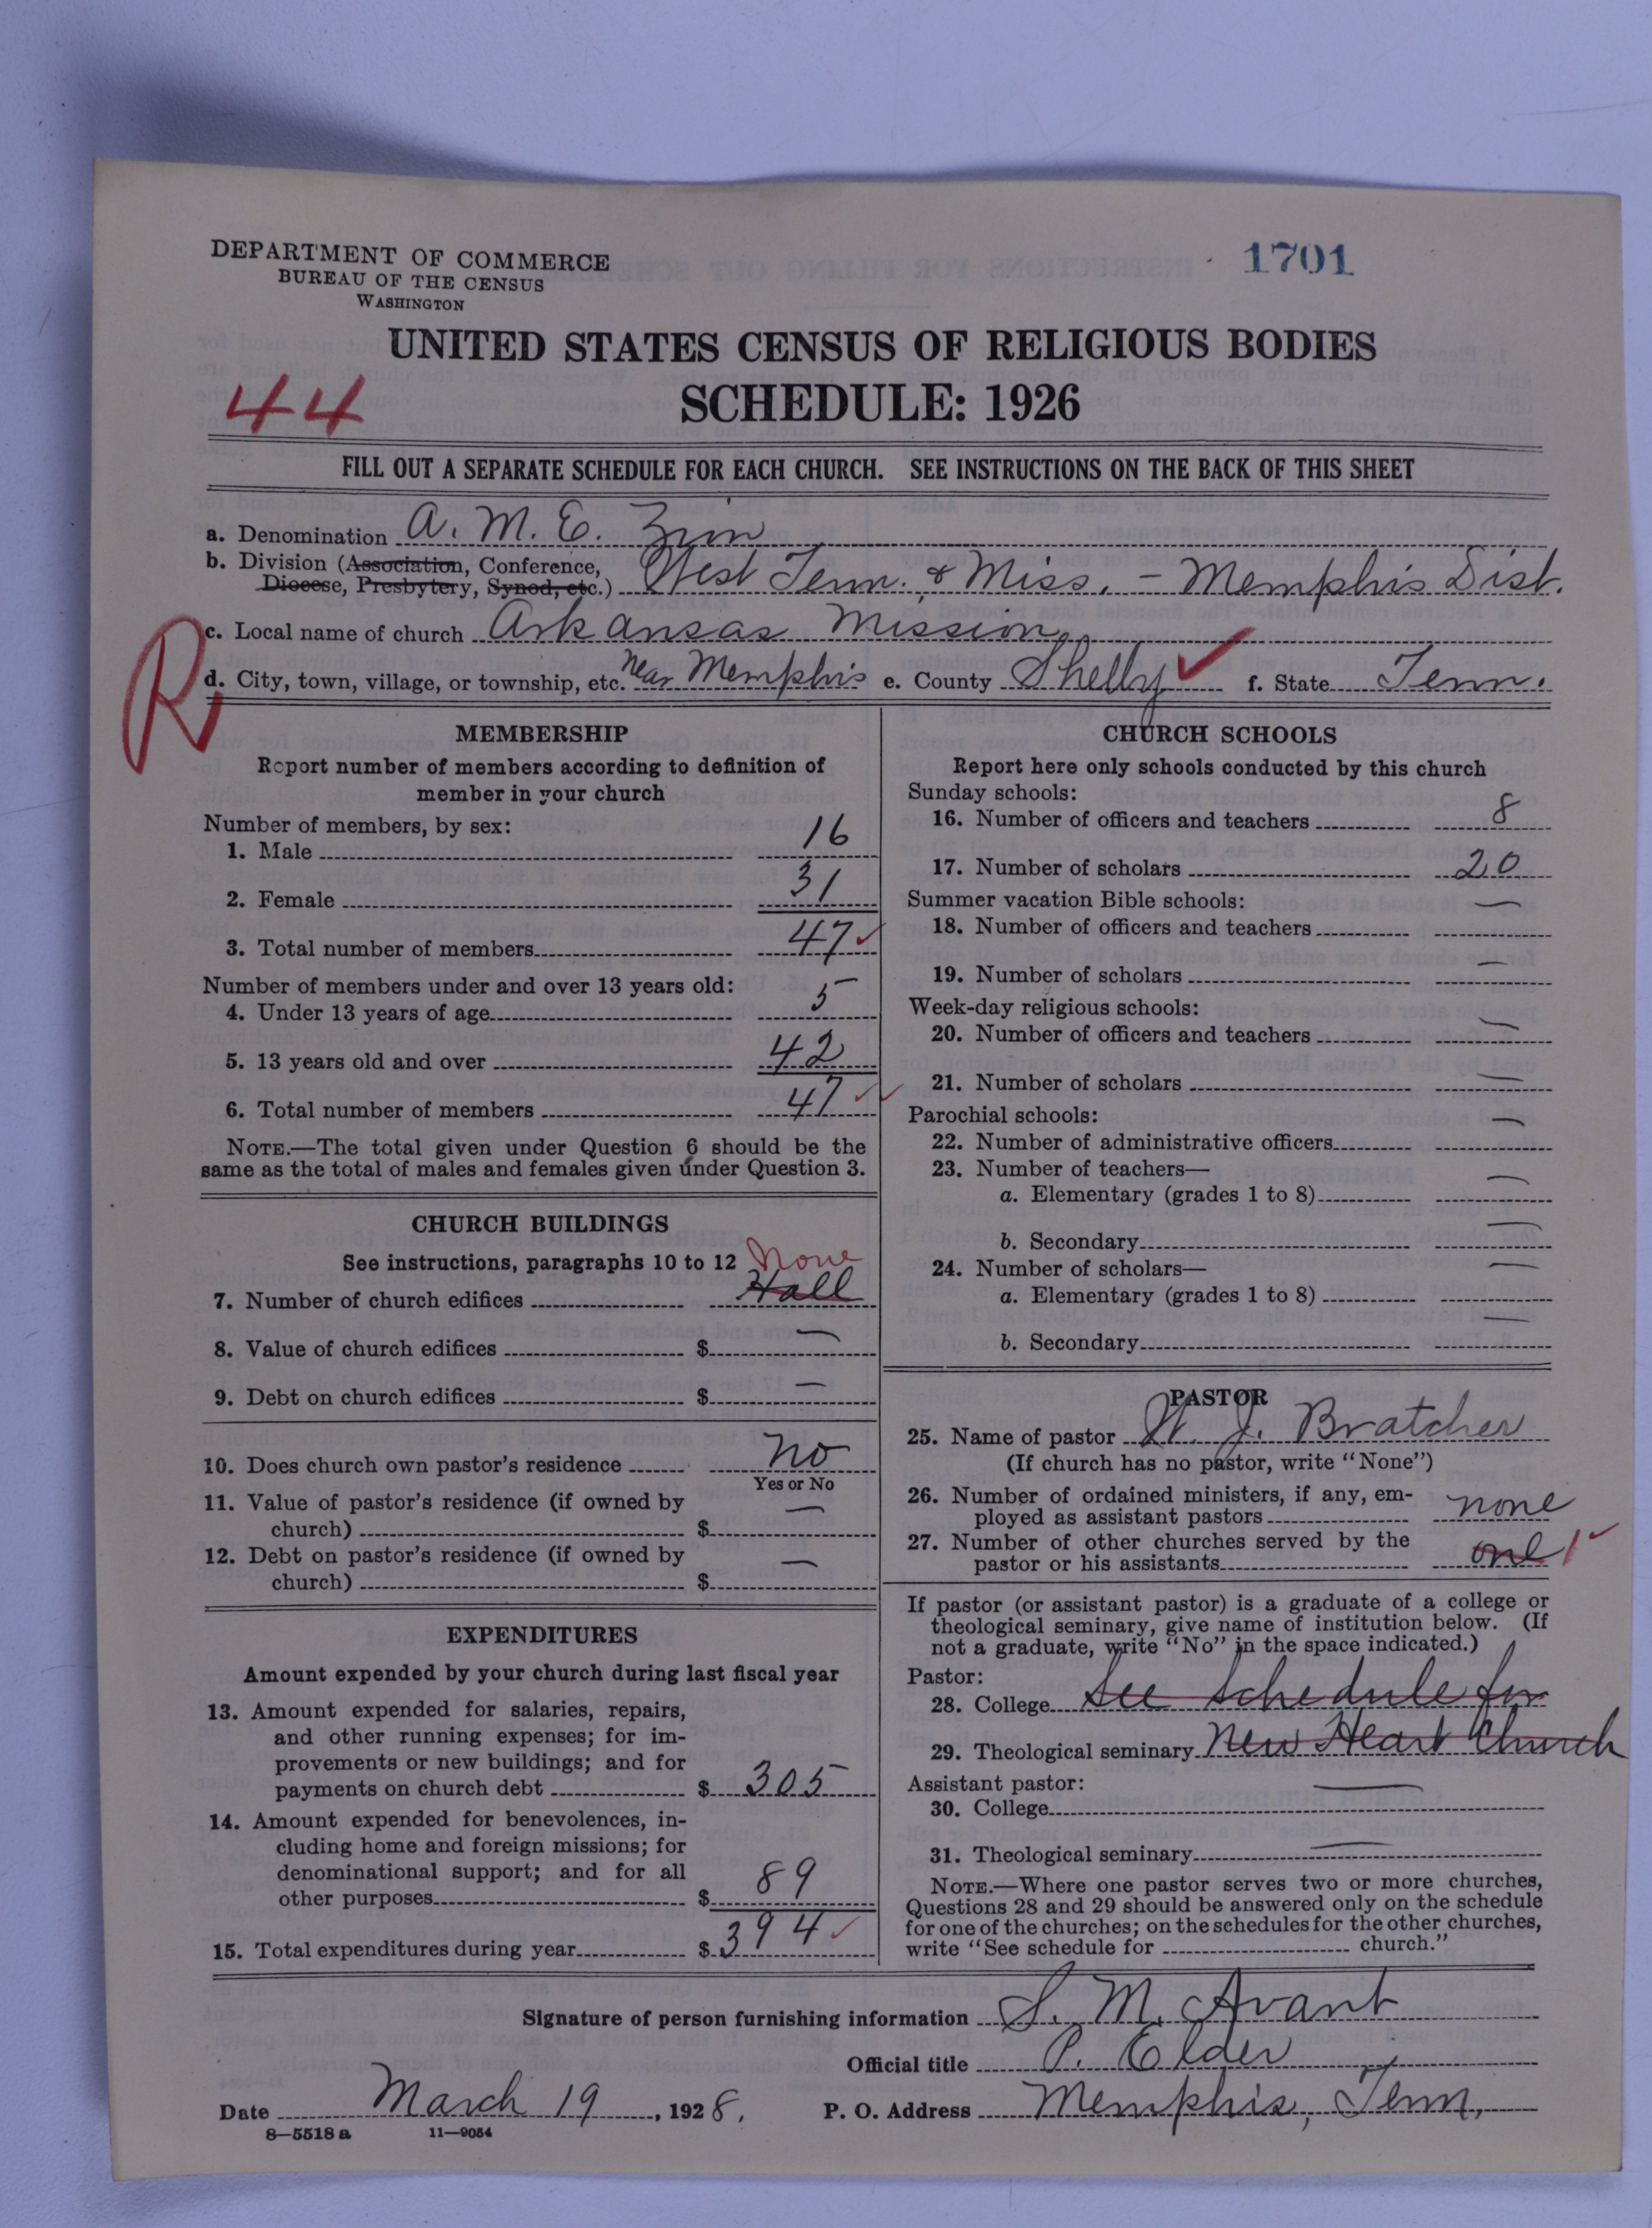 DEPARTMENT OF COMMERCE
BUREAU OF THE CENSUS
WASHINGTON
1701
UNITED STATES CENSUS OF RELIGIOUS BODIES
SCHEDULE: 1926
44
FILL OUT A SEPARATE SCHEDULE FOR EACH CHURCH. SEE INSTRUCTIONS ON THE BACK OF THIS SHEET
a. Denomination A. M. E. Zion
b. Division (Association, Conference,
Diocese, Presbytery, Synod, etc.) West Tenn. & Miss. - Memphis Dist.
c. Local name of church Arkansas Mission
R
d. City, town, village, or township, etc. near Memphis e. County Shelby f. State Tenn.
MEMBERSHIP
Report number of members according to definition of
member in your church
Number of members, by sex:
1. Male 16
2. Female 31
3. Total number of members 47
Number of members under and over 13 years old:
4. Under 13 years of age 5
5. 13 years old and over 42
6. Total number of members 47
NOTE.—The total given under Question 6 should be the
same as the total of males and females given under Question 3.
CHURCH BUILDINGS
See instructions, paragraphs 10 to 12 None
7. Number of church edifices Hall
8. Value of church edifices $ —
9. Debt on church edifices $ —
10. Does church own pastor's residence No
Yes or No
11. Value of pastor's residence (if owned by
church) $ —
12. Debt on pastor's residence (if owned by
church) $ —
EXPENDITURES
Amount expended by your church during last fiscal year
13. Amount expended for salaries, repairs,
and other running expenses; for im-
provements or new buildings; and for
payments on church debt $ 305
14. Amount expended for benevolences, in-
cluding home and foreign missions; for
denominational support; and for all
other purposes $ 89
15. Total expenditures during year $ 394
CHURCH SCHOOLS
Report here only schools conducted by this church
Sunday schools:
16. Number of officers and teachers 8
17. Number of scholars 20
Summer vacation Bible schools:
18. Number of officers and teachers —
19. Number of scholars —
Week-day religious schools:
20. Number of officers and teachers —
21. Number of scholars —
Parochial schools:
22. Number of administrative officers —
23. Number of teachers—
a. Elementary (grades 1 to 8) —
b. Secondary —
24. Number of scholars—
a. Elementary (grades 1 to 8) —
b. Secondary —
PASTOR
25. Name of pastor W. J. Bratcher
(If church has no pastor, write "None")
26. Number of ordained ministers, if any, em-
ployed as assistant pastors none
27. Number of other churches served by the
pastor or his assistants one 1
If pastor (or assistant pastor) is a graduate of a college or
theological seminary, give name of institution below. (If
not a graduate, write "No" in the space indicated.)
Pastor:
28. College See Schedule for
29. Theological seminary New Heart Church
Assistant pastor:
30. College —
31. Theological seminary —
NOTE.—Where one pastor serves two or more churches,
Questions 28 and 29 should be answered only on the schedule
for one of the churches; on the schedules for the other churches,
write "See schedule for church."
Signature of person furnishing information S. M. Avant
Official title P. Elder
Date March 19, 1928. P. O. Address Memphis, Tenn.
8—5518a 11—9054